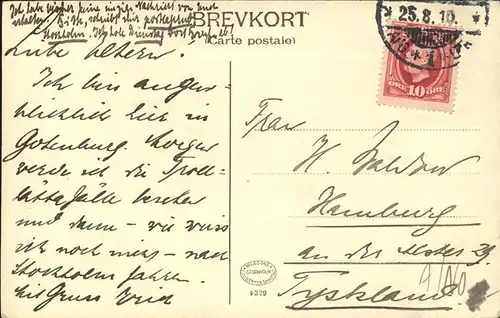 Ich habe bisher keine einzige Nachricht von Euch
erhalten. Bitte, schreibt mir postlagernd
Stockholm. Ich hole Dienstag dort
BREVKORT
(Carte postale)
25.8.10.
10 ÖRE 10
Liebe Eltern!
Ich bin augen-
blicklich hier in
Gotenburg. Morgen
werde ich die Troll-
hätta Fälle besuchen
und dann – wie weiss
ich noch nicht – nach
Stockholm fahren.
Mit Gruss
Frau
H.
Hamburg
an der Alster
Tyskland
9329